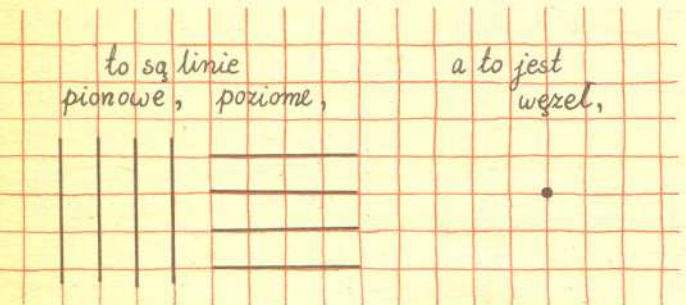 to są linie
pionowe, poziome,
a to jest
węzeł,